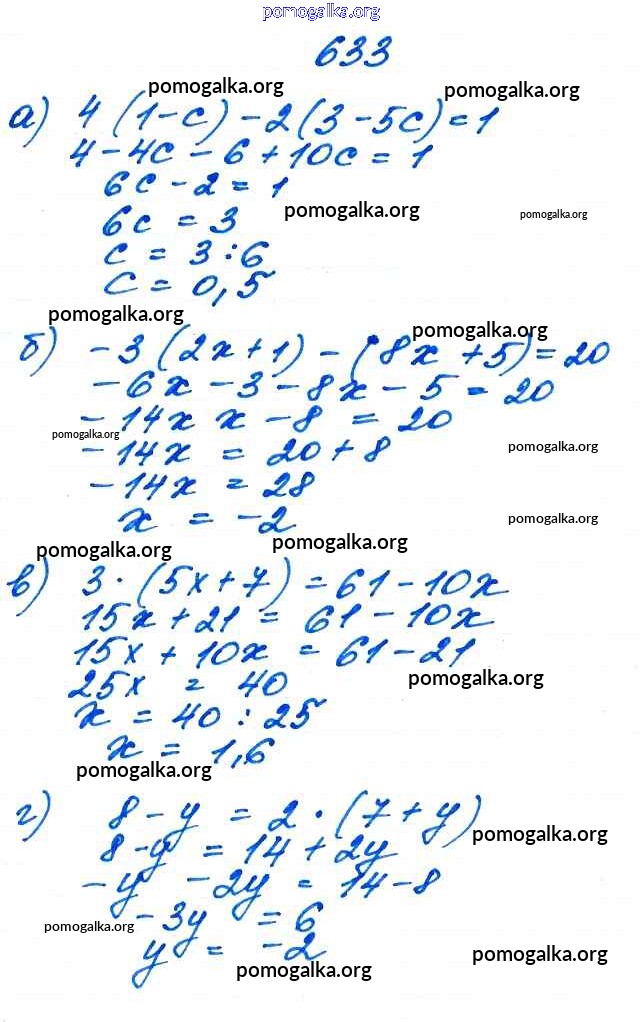 pomogalka.org
633
pomogalka.org pomogalka.org
а) 4 (1 - c) - 2 (3 - 5c) = 1
4 - 4c - 6 + 10c = 1
6c - 2 = 1
6c = 3
pomogalka.org pomogalka.org
c = 3 : 6
c = 0,5
pomogalka.org pomogalka.org
б) -3 (2x + 1) - (8x + 5) = 20
-6x - 3 - 8x - 5 = 20
-14x x - 8 = 20
pomogalka.org pomogalka.org
-14x = 20 + 8
-14x = 28
x = -2
pomogalka.org
pomogalka.org pomogalka.org
в) 3 · (5x + 7) = 61 - 10x
15x + 21 = 61 - 10x
15x + 10x = 61 - 21
25x = 40
pomogalka.org
x = 40 : 25
x = 1,6
pomogalka.org
г) 8 - y = 2 · (7 + y)
pomogalka.org
8 - y = 14 + 2y
-y - 2y = 14 - 8
-3y = 6
pomogalka.org
y = -2
pomogalka.org pomogalka.org